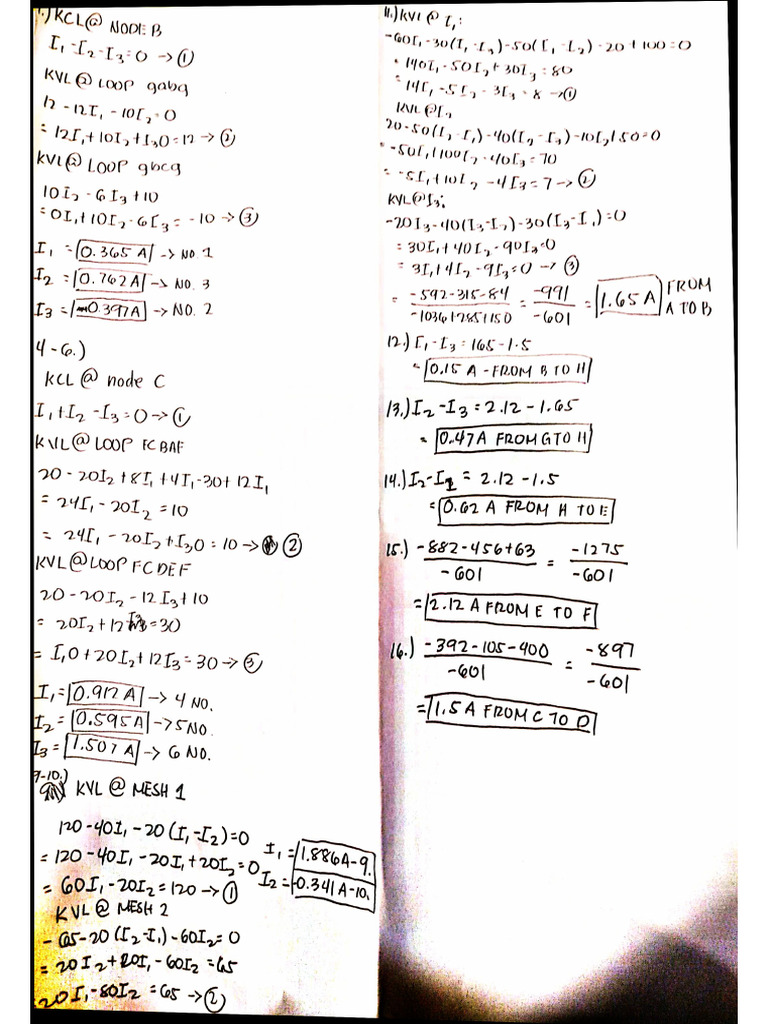 1.) KCL@ NODE B
I₁-I₂-I₃=0 → ①
KVL@ LOOP gabg
12-12I₁-10I₂=0
=12I₁+10I₂+I₃0=12 → ②
KVL@ LOOP gbcg
10I₂-6I₃+10
=0I₁+10I₂-6I₃=-10 → ③
I₁=0.365 A → NO. 1
I₂=0.762A → NO. 3
I₃=-0.397A → NO. 2
4-6.)
KCL @ node C
I₁+I₂-I₃=0 → ①
KVL@ LOOP FCBAF
20-20I₂+8I₁+4I₁-30+12I₁
=24I₁-20I₂=10
=24I₁-20I₂+I₃0=10 → ②
KVL@LOOP FCDEF
20-20I₂-12I₃+10
=20I₂+12I₃=30
=I₁0+20I₂+12I₃=30 → ③
I₁=0.912 A → 4 NO.
I₂=0.595A → 5NO.
I₃=1.507A → 6 NO.
9-10.)
KVL @ MESH 1
120-40I₁-20(I₁-I₂)=0
=120-40I₁-20I₁+20I₂=0
=60I₁-20I₂=120 → ①
I₁=1.886A-9.
I₂=-0.341A-10.
KVL @ MESH 2
-65-20(I₂-I₁)-60I₂=0
=20I₂+20I₁-60I₂=65
20I₁-80I₂=65 → ②
11.) KVL @ I₁:
-60I₁-30(I₁-I₃)-50(I₁-I₂)-20+100=0
=140I₁-50I₂+30I₃=80
=14I₁-5I₂-3I₃=8 → ①
KVL@I₂
20-50(I₂-I₁)-40(I₂-I₃)-10I₂150=0
=-50I₁1100I₂-40I₃=70
=-5I₁+10I₂-4I₃=7 → ②
KVL@I₃:
-20I₃-40(I₃-I₂)-30(I₃-I₁)=0
=30I₁+40I₂-90I₃=0
=3I₁+4I₂-9I₃=0 → ③
=-592-315-84/-103617851150=-991/-601=1.65 A FROM A TO B
12.) I₁-I₃=165-1.5
=0.15 A-FROM B TO H
13.) I₂-I₃=2.12-1.65
=0.47A FROM G TO H
14.) I₂-I₁=2.12-1.5
=0.62 A FROM H TO E
15.) -882-456+63/-601=-1275/-601
=2.12 A FROM E TO F
16.) -392-105-400/-601=-897/-601
=1.5 A FROM C TO D